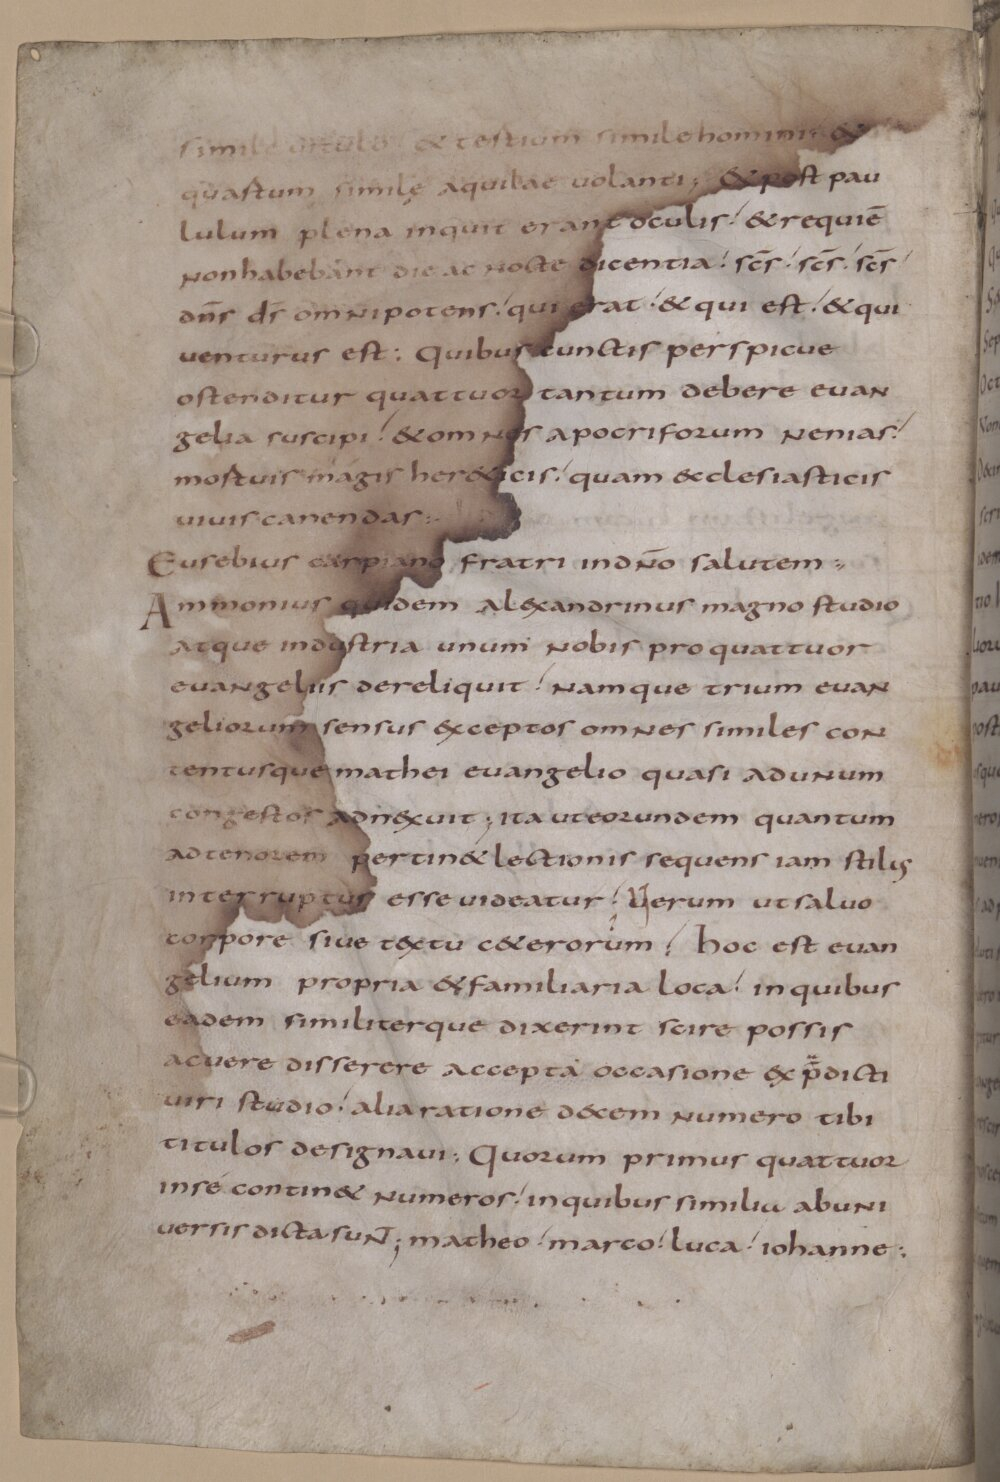 simile vitulo & tertium simile homini &
quartum simile aquilae volanti; & post pau
lulum plena inquit erant oculis! & requiē
non habebant die ac nocte dicentia! scs̄! scs̄! scs̄!
dn̄s ds̄ omnipotens! qui erat! & qui est! & qui
venturus est: Quibus cunctis perspicue
ostenditur quattuor tantum debere evan
gelia suscipi! & omnes apocriforum nenias!
mostuis magis her&icis! quam &cclesiasticis
vivis canendas:
Eusebius carpiano fratri in dn̄o salutem:
Ammonius quidem alexandrinus magno studio
atque industria unum nobis pro quattuor
evangeliis dereliquit! namque trium evan
geliorum sensus exceptos omnes similes con
tentusque mathei evangelio quasi ad unum
congestos adnexuit; ita ut eorundem quantum
ad tenorem pertin& lectionis sequens iam stilus
interruptus esse videatur! Verum ut salvo
corpore sive textu c&erorum! hoc est evan
gelium propria & familiaria loca! in quibus
eadem similiterque dixerint scire possis
ac vere disserere accepta occasione ex p̄dicti
viri studio! alia ratione decem numero tibi
titulos designavi: Quorum primus quattuor
in se contin& numeros! in quibus similia ab uni
versis dicta sunt; matheo! marco! luca! iohanne: